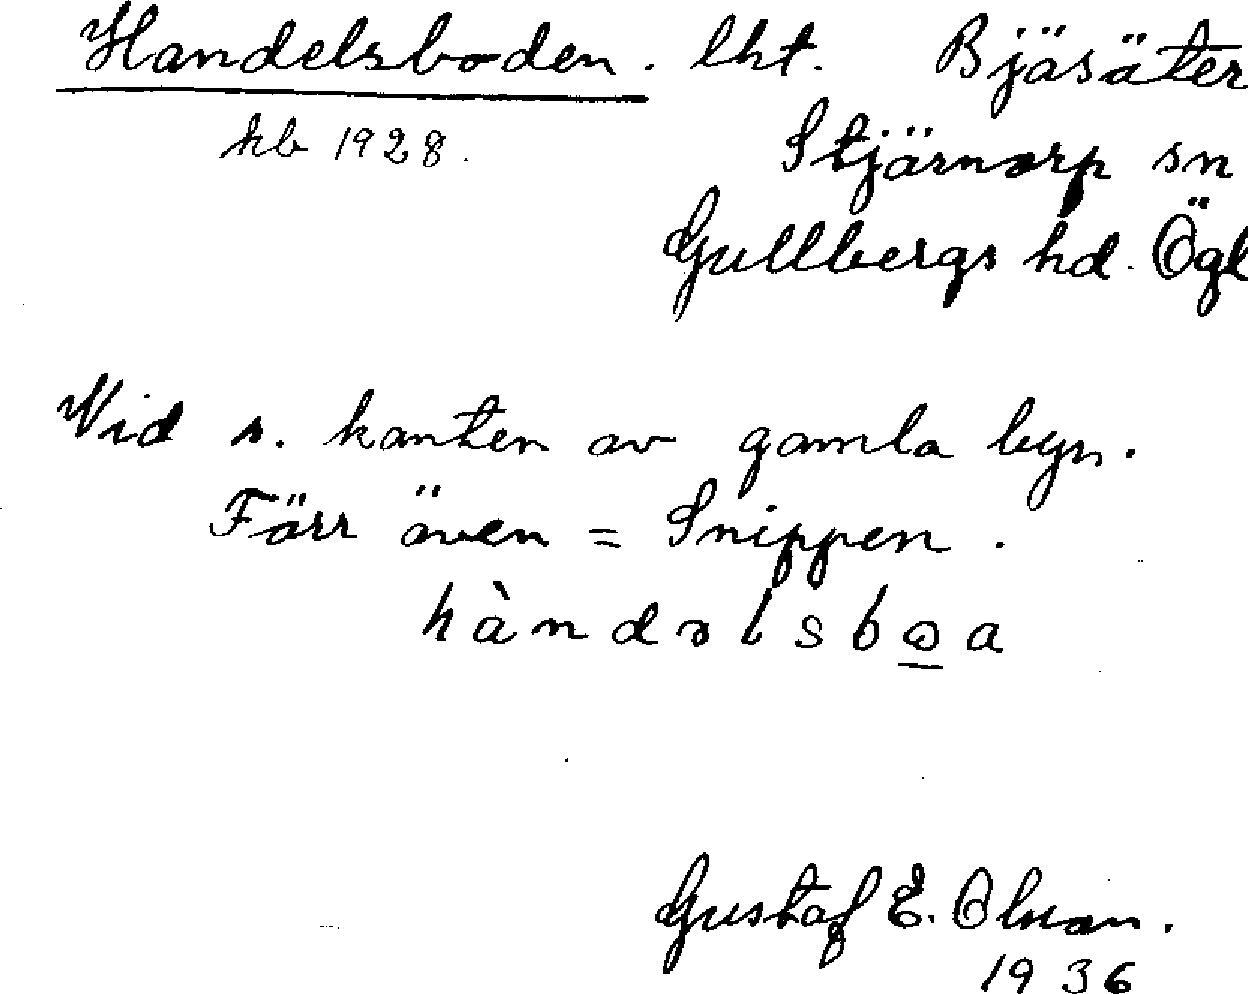 Handelsboden. lht. Bjäsäter
hb 1928. Stjärnorp sn
Gullbergs hd. Ögl
Vid s. kanten av gamla byn.
Färr även = Snippen.
hàndəlsbo̲a
Gustaf E. Olsson.
1936